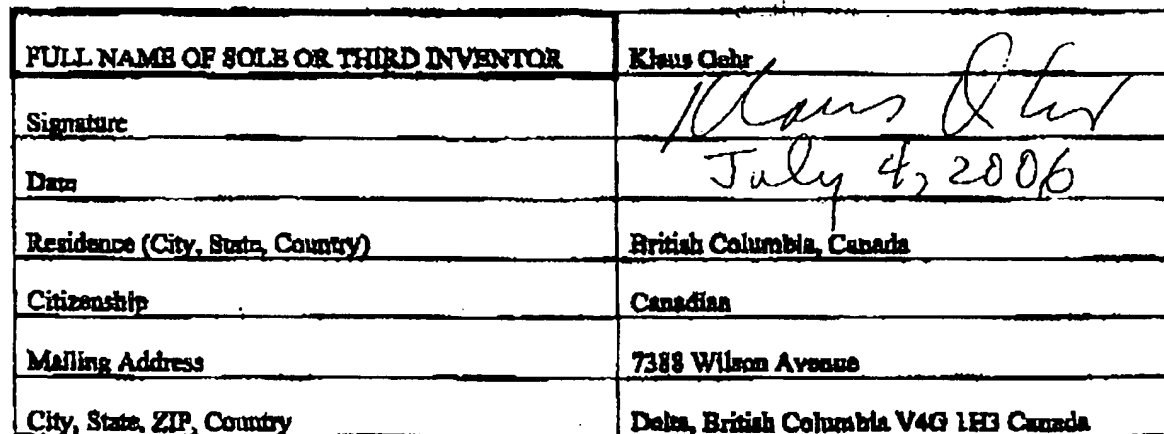 FULL NAME OF SOLE OR THIRD INVENTOR Klaus Gehr
Signature Klaus Gehr
Date July 4, 2006
Residence (City, State, Country) British Columbia, Canada
Citizenship Canadian
Mailing Address 7388 Wilson Avenue
City, State, ZIP, Country Delta, British Columbia V4G 1H3 Canada